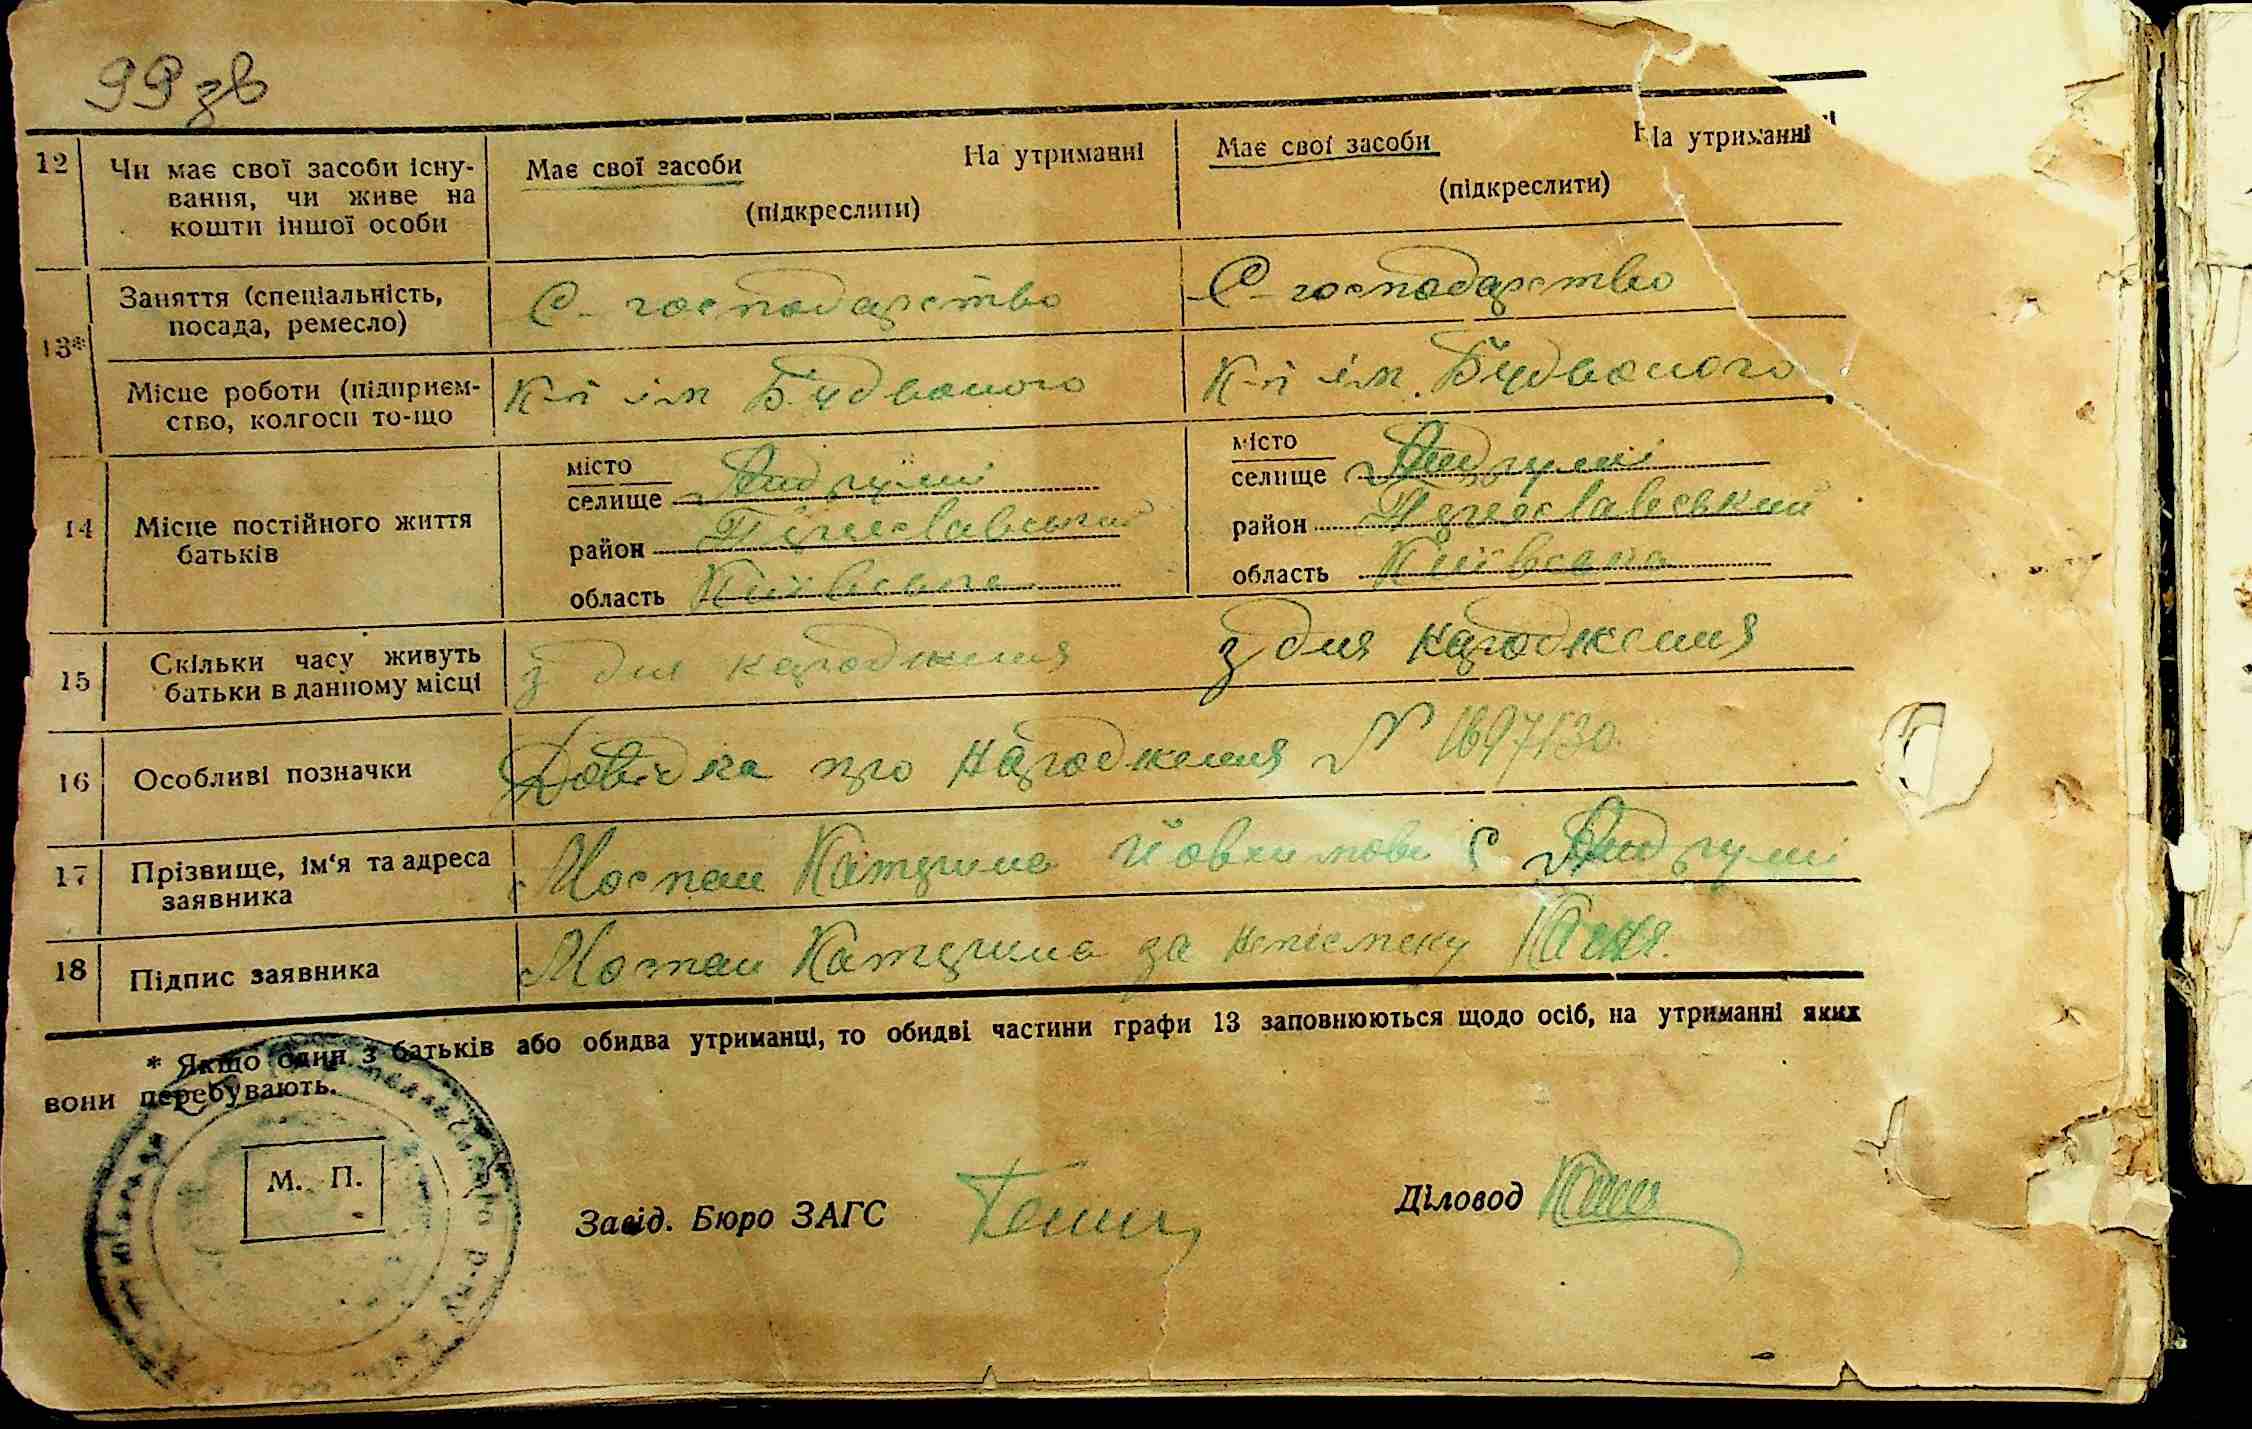 99 зв
12 Чи має свої засоби існу- Має свої засоби На утриманні Має свої засоби На утриманні
вання, чи живе на (підкреслити) (підкреслити)
кошти іншої особи
13* Заняття (спеціальність, С-господарство С-господарство
посада, ремесло)
Місце роботи (підприєм- К-п ім Будьоного К-п ім. Будьоного
ство, колгосп то-що
14 Місце постійного життя
батьків
місто місто
селище Андруші селище Андруші
район Переславський район Переславський
область Київська область Київська
15 Скільки часу живуть з дня народження з дня народження
батьки в данному місці
16 Особливі позначки Довідка про народження № 1697130
17 Прізвище, ім'я та адреса Моспан Катерина с Андруші
заявника
18 Підпис заявника Моспан Катерина за
* Якщо один з батьків або обидва утриманці, то обидві частини графи 13 заповнюються щодо осіб, на утриманні яких
вони перебувають.
М. П.
Завід. Бюро ЗАГС
Діловод